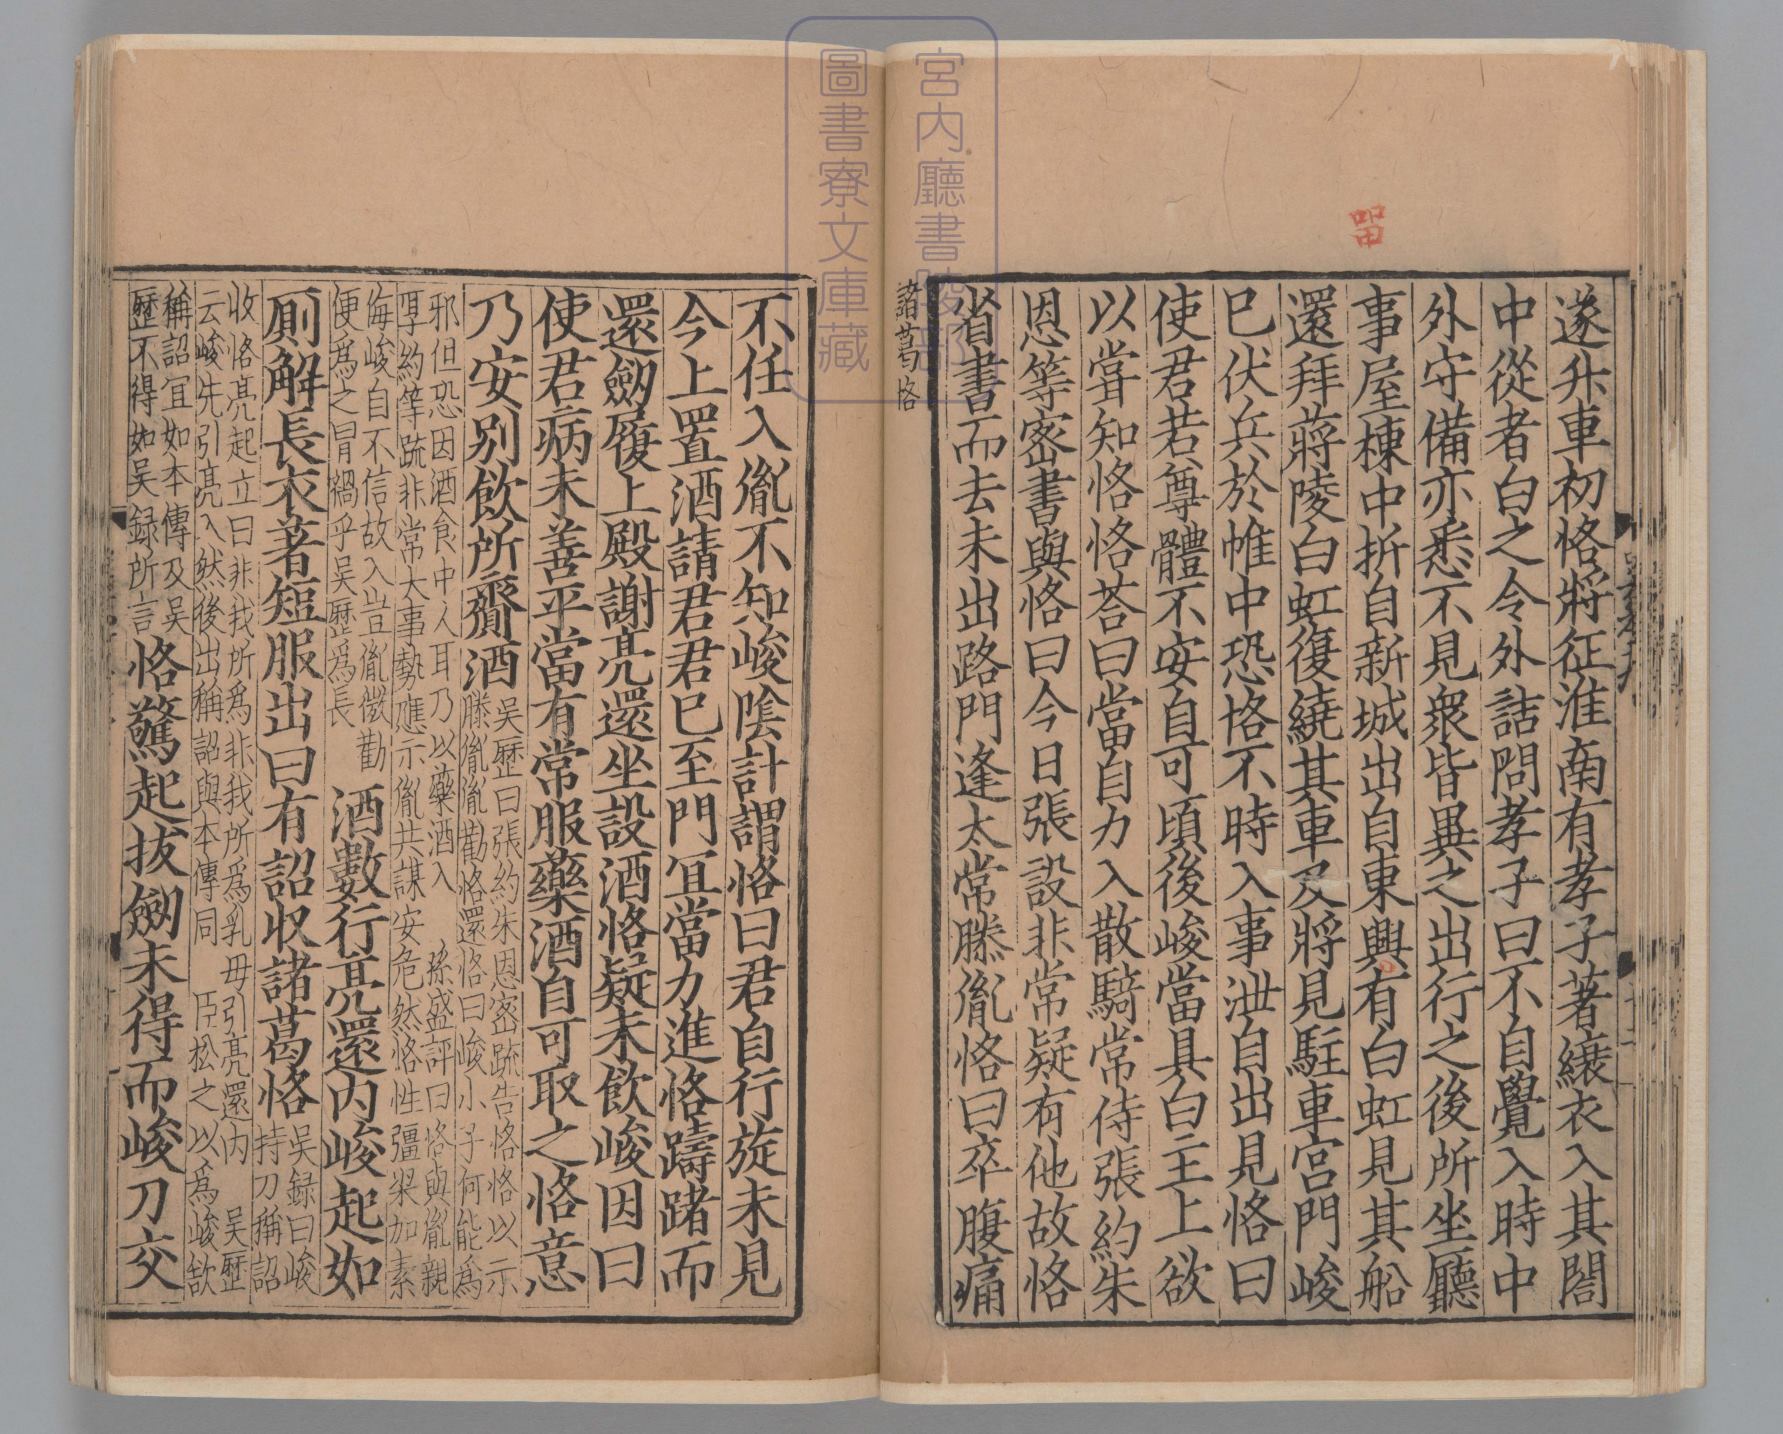 遂升車初恪將征淮南有孝子著縗衣入其閤
中從者白之令外詰問孝子曰不自覺入時中
外守備亦悉不見衆皆異之出行之後所坐廳
事屋棟中折自新城出自東興有白虹見其船
還拜蔣陵白虹復繞其車及將見駐車宮門峻
巳伏兵於帷中恐恪不時入事泄自出見恪曰
使君若尊體不安自可須後峻當具白主上欲
以甞知恪恪荅曰當自力入散騎常侍張約朱
恩等密書與恪曰今日張設非常疑有他故恪
省書而去未出路門逢太常滕胤恪曰卒腹痛
諸葛恪
不任入胤不知峻陰計謂恪曰君自行旋未見
今上置酒請君君巳至門冝當力進恪躊躇而
還劒履上殿謝亮還坐設酒恪疑未飲峻因曰
使君病未善平當有常服藥酒自可取之恪意
乃安別飲所齎酒
吳歷曰張約朱恩密疏告恪恪以示
滕胤胤勸恪還恪曰峻小子何能爲
邪但恐因酒食中人耳乃以藥酒入 孫盛評曰恪與胤親
厚約等疏非常大事勢應示胤共謀安危然恪性彊梁加素
侮峻自不信故入豈胤微勸
便爲之冒禍乎吳歷爲長
酒數行亮還內峻起如
厠解長衣著短服出曰有詔収諸葛恪
吳録曰峻
持刀稱詔
收恪亮起立曰非我所爲非我所爲乳母引亮還內 吳歷
云峻先引亮入然後出稱詔與本傳同 臣松之以爲峻欲
稱詔冝如本傳及吳
歷不得如吳録所言
恪驚起拔劒未得而峻刀交
宮内廳書陵部
圖書寮文庫藏